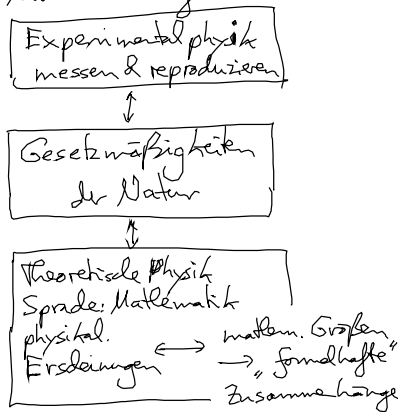 Experimentalphysik
messen & reproduzieren
↕
Gesetzmäßigkeiten
der Natur
↕
Theoretische Physik
Sprache: Mathematik
physikal. mathem. Größen
Erscheinungen ↔ → "formelhafte"
Zusammenhänge